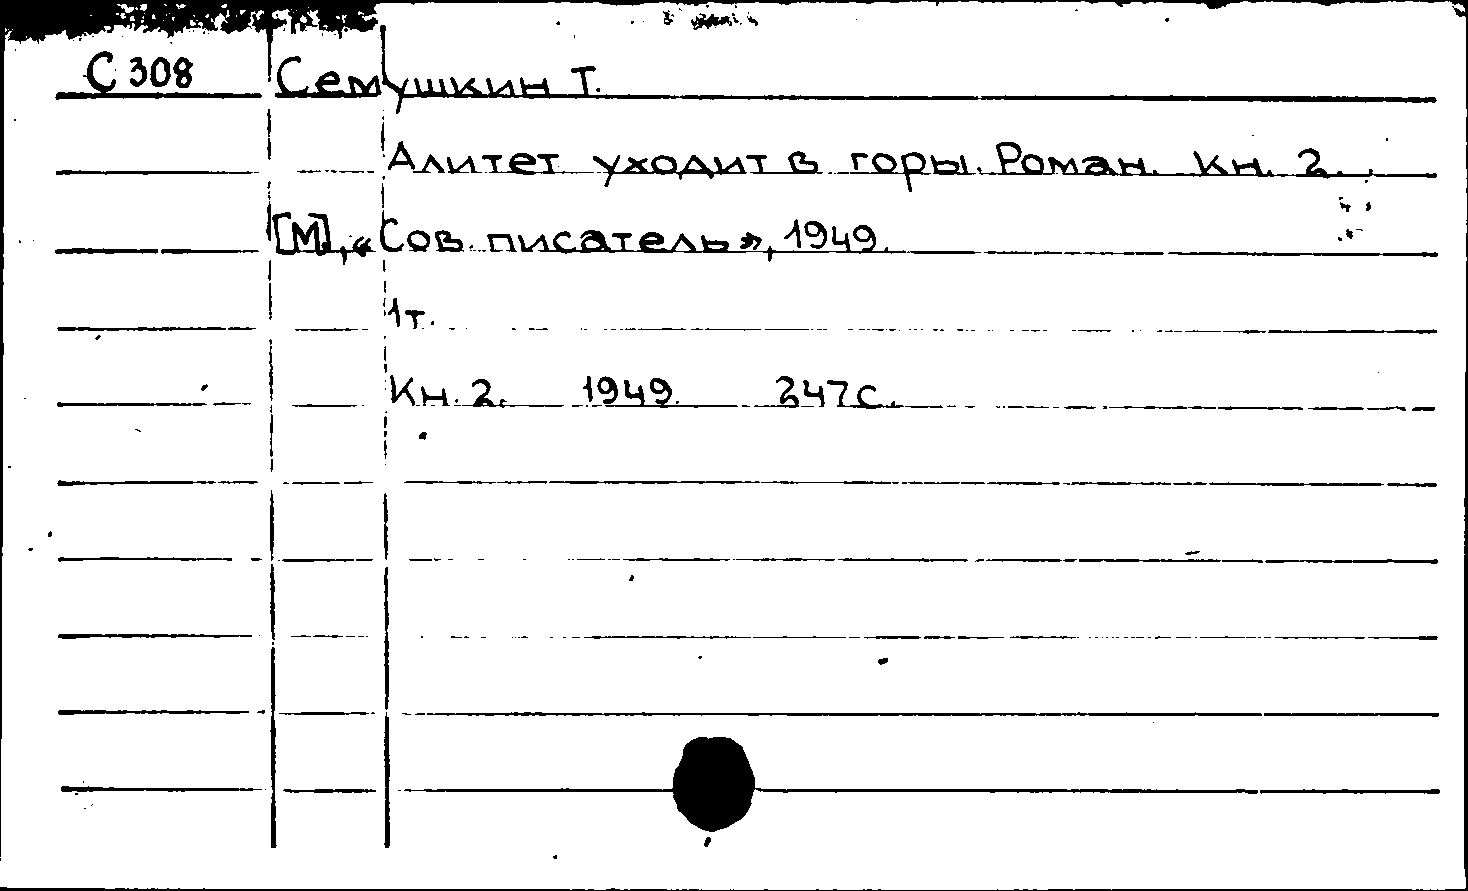 С 308 Семушкин Т.
Алитет уходит в горы. Роман. Кн. 2.
[М], «Сов. писатель», 1949.
1 т.
Кн. 2. 1949. 247 с.